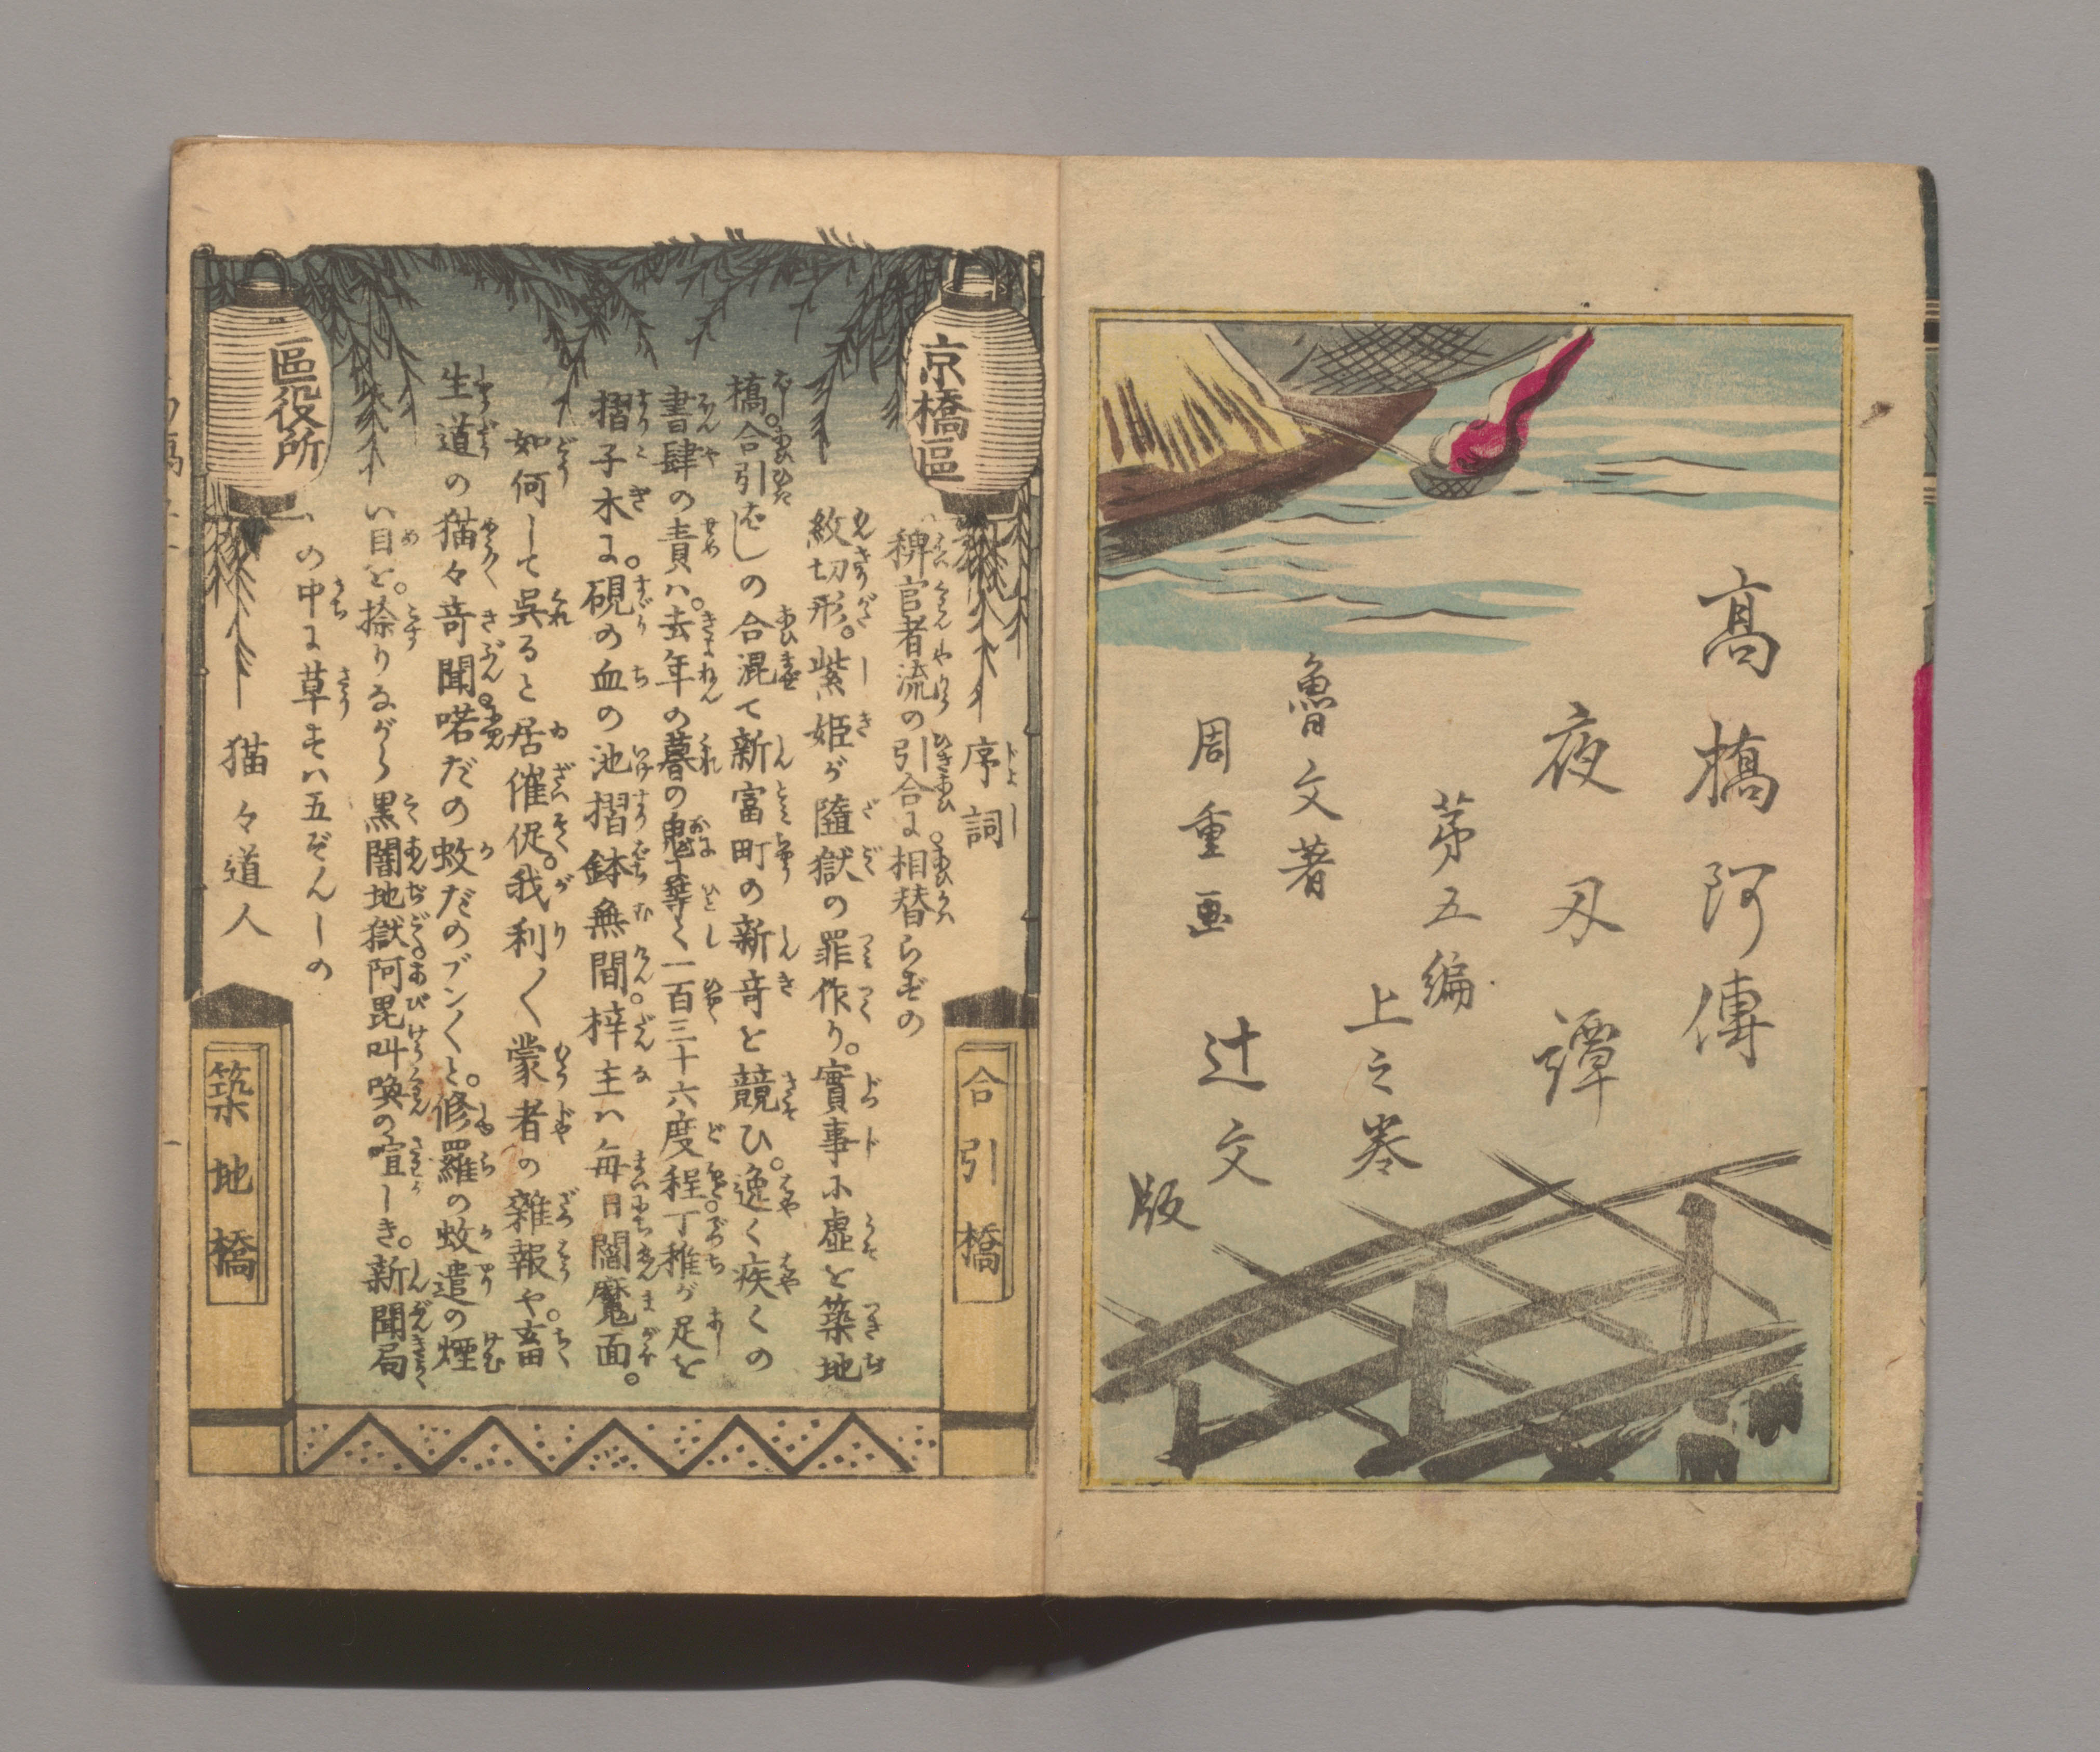 髙橋阿傳
夜刄譚
第五編
上之巻
魯文著
周重画
辻文
版
京橋區
序詞
稗官者流の引合に相替らずの
紋切形。紫姫が墮獄の罪作り。實事に虚を築地
橋。合引ばしの合混て新富町の新竒を競ひ。逸く疾くの
書肆の責ハ。去年の暮の鬼に等しく一百三十六度程丁稚が足を
摺子木に。硯の血の池摺鉢無間。梓主ハ毎日閻魔面。
如何して呉ると居催促。我利〳〵蒙者の雜報や。畜
生道の猫々竒聞。喏だの蚊だのブン〳〵と。修羅の蚊遣の煙
い目を。捺りながら黒闇地獄阿毘叫喚の喧しき。新聞局
の中に草すハ五ぞんじの
猫々道人
區役所
合引橋
築地橋